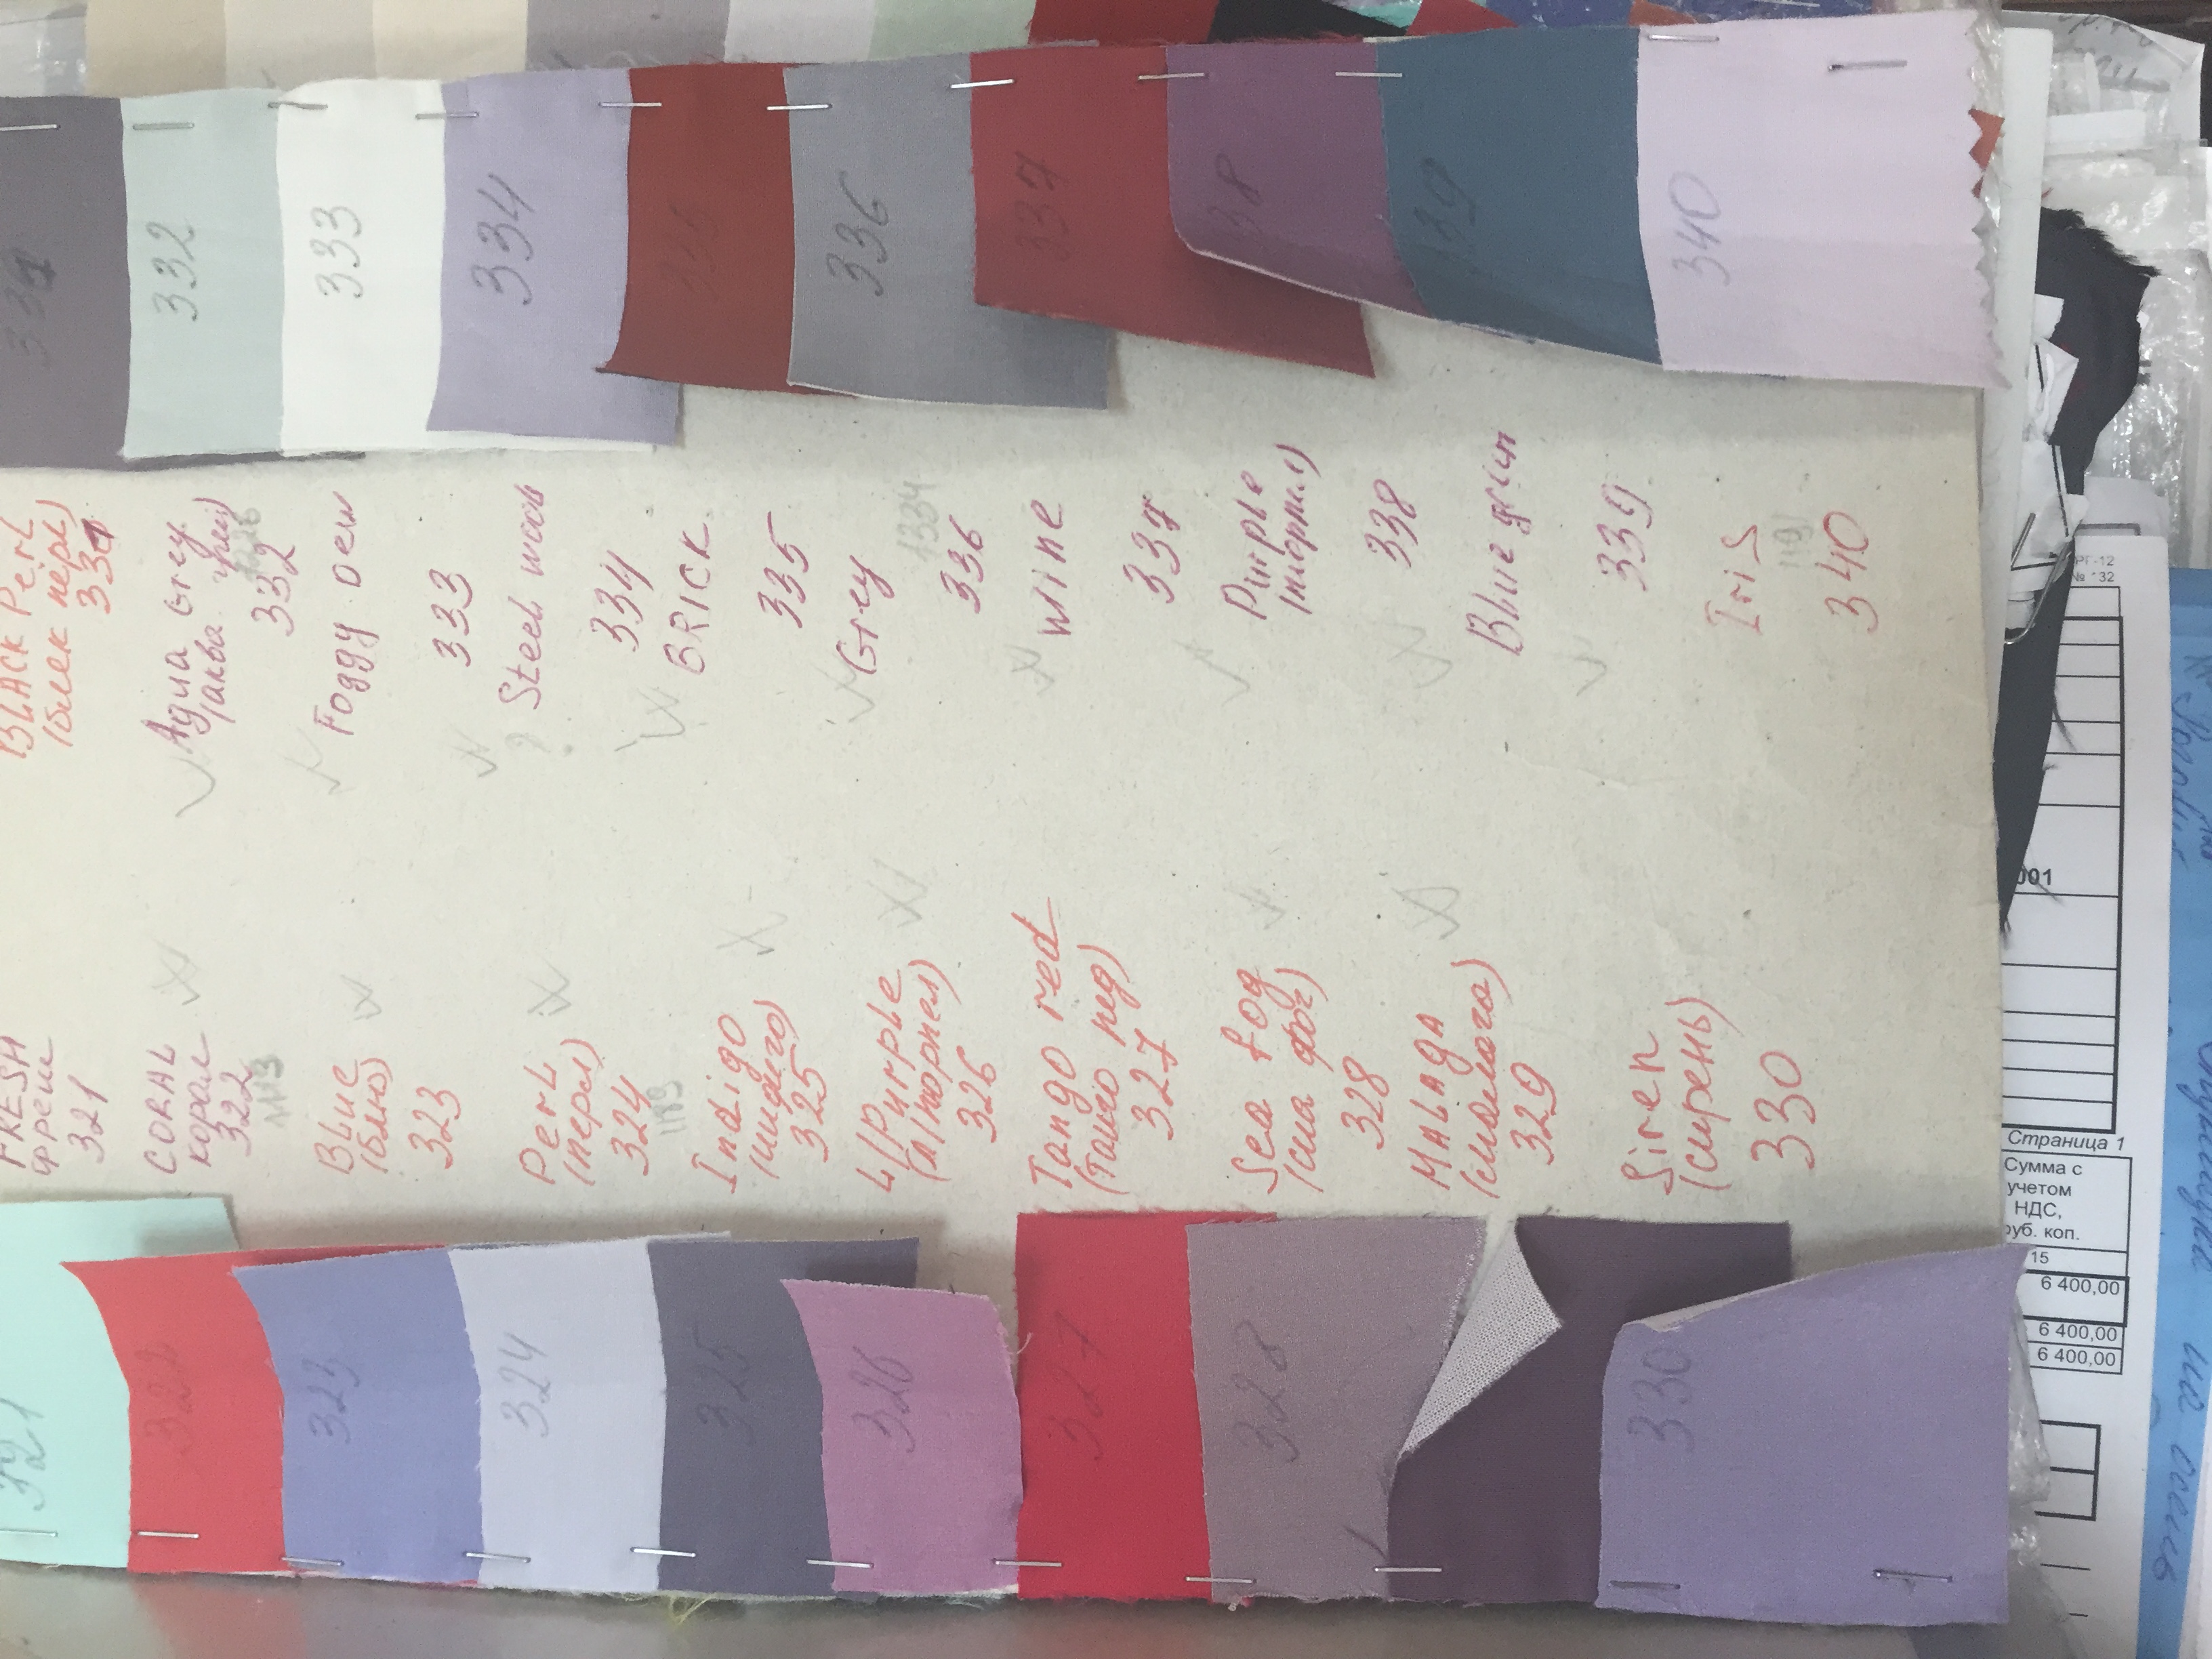 331
332
333
334
335
336
337
338
339
340
BLACK Perl
(блек перл)
331
Aqua Grey
(аква грей)
332
Foggy Dew
333
Steel wool
334
BRICK
335
Grey
1334
336
wine
337
Purple
(пюрпл)
338
Blue green
339
Iris
1191
340
FRESH
фреш
321
CORAL
корал
322
1113
Blue
(блю)
323
Perl
(перл)
324
Indigo
(индиго)
325
L/Purple
(л/пюрпел)
326
Tango red
(танго ред)
327
Sea fog
(сиа фог)
328
MALAgA
(малага)
329
Siren
(сирень)
330
321
322
323
324
325
326
327
328
330
001
Страница 1
Сумма с
учетом
НДС,
руб. коп.
15
6 400,00
6 400,00
6 400,00